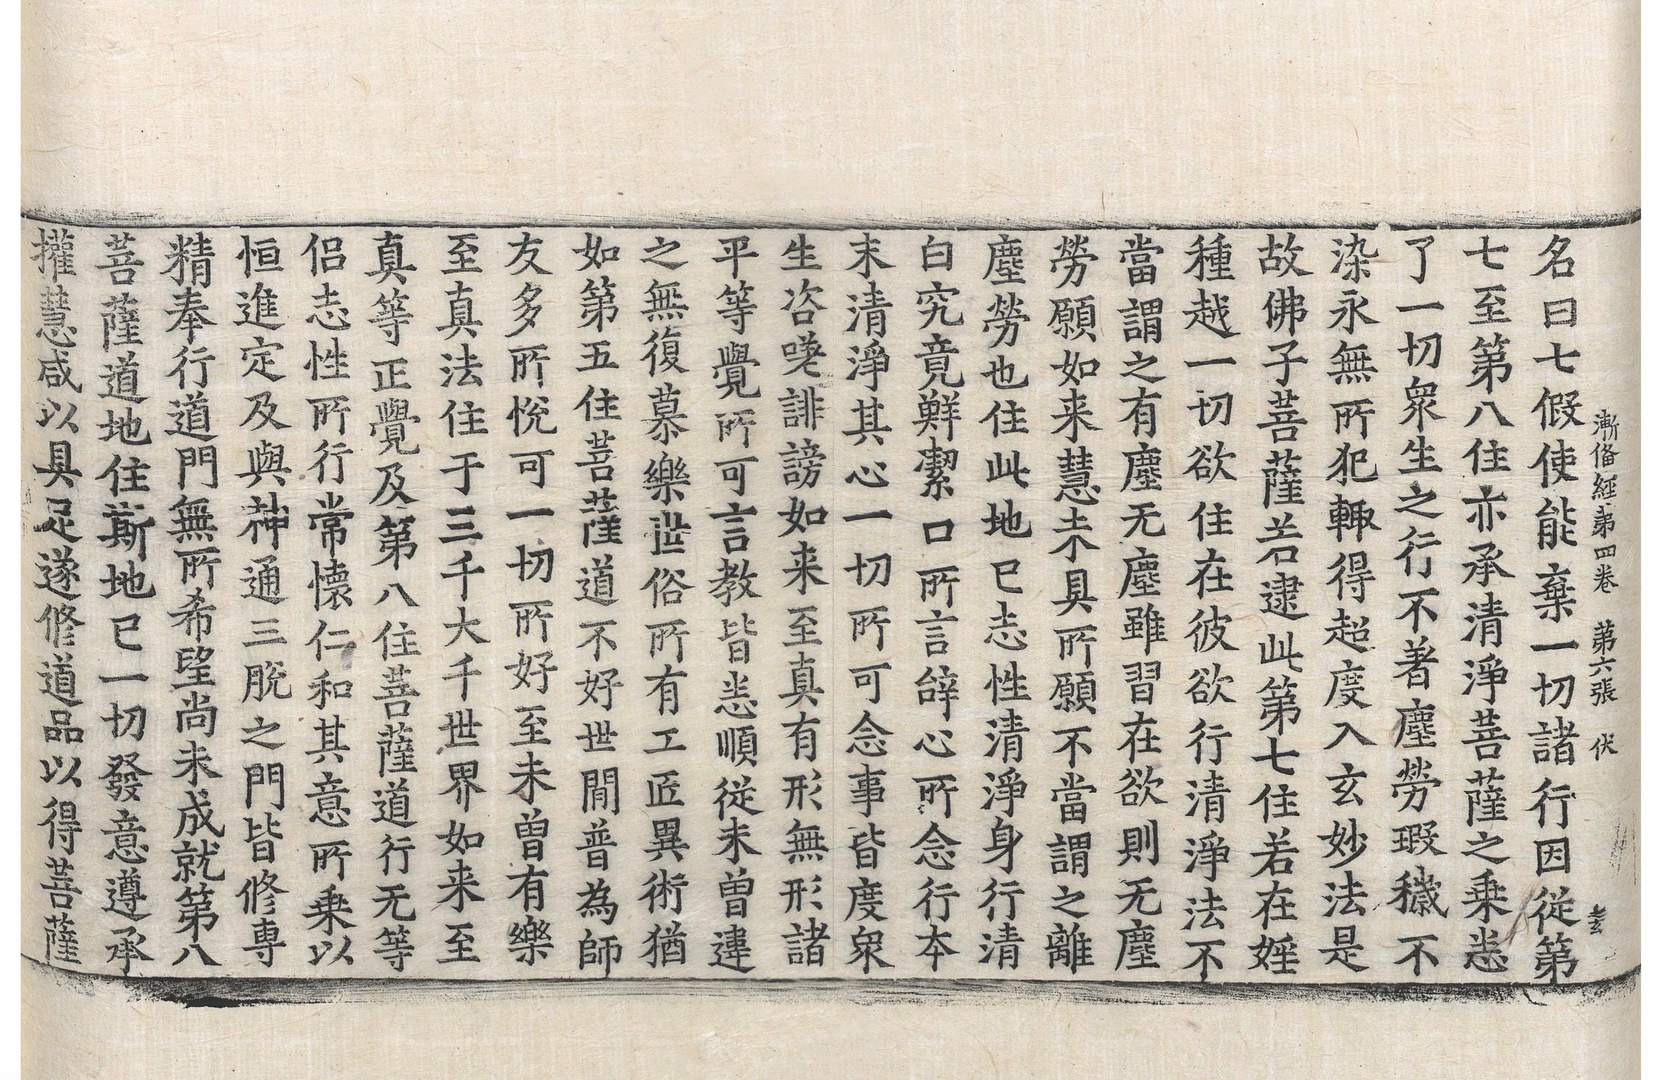 漸俻經第四卷　第六張　伏
名曰七假使能棄一切諸行因從第
七至第八住亦承清淨菩薩之乗悉
了一切衆生之行不著塵勞瑕穢不
染永無所犯輙得超度入玄妙法是
故佛子菩薩若逮此第七住若在婬
種越一切欲住在彼欲行清淨法不
當謂之有塵无塵雖習在欲則无塵
勞願如来慧未具所願不當謂之離
塵勞也住此地已志性清淨身行清
白究竟鮮潔口所言辝心所念行本
末清淨其心一切所可念事皆度衆
生咨嗟誹謗如来至真有形無形諸
平等覺所可言教皆悉順従未曽違
之無復慕樂世俗所有工匠異術猶
如第五住菩薩道不好世閒普為師
友多所悅可一切所好至未曽有樂
至真法住于三千大千世界如来至
真等正覺及第八住菩薩道行无等
侣志性所行常懷仁和其意所乗以
恒進定及與神通三脫之門皆修專
精奉行道門無所希望尚未成就第八
菩薩道地住斯地已一切發意遵承
權慧咸以具足遂修道品以得菩薩